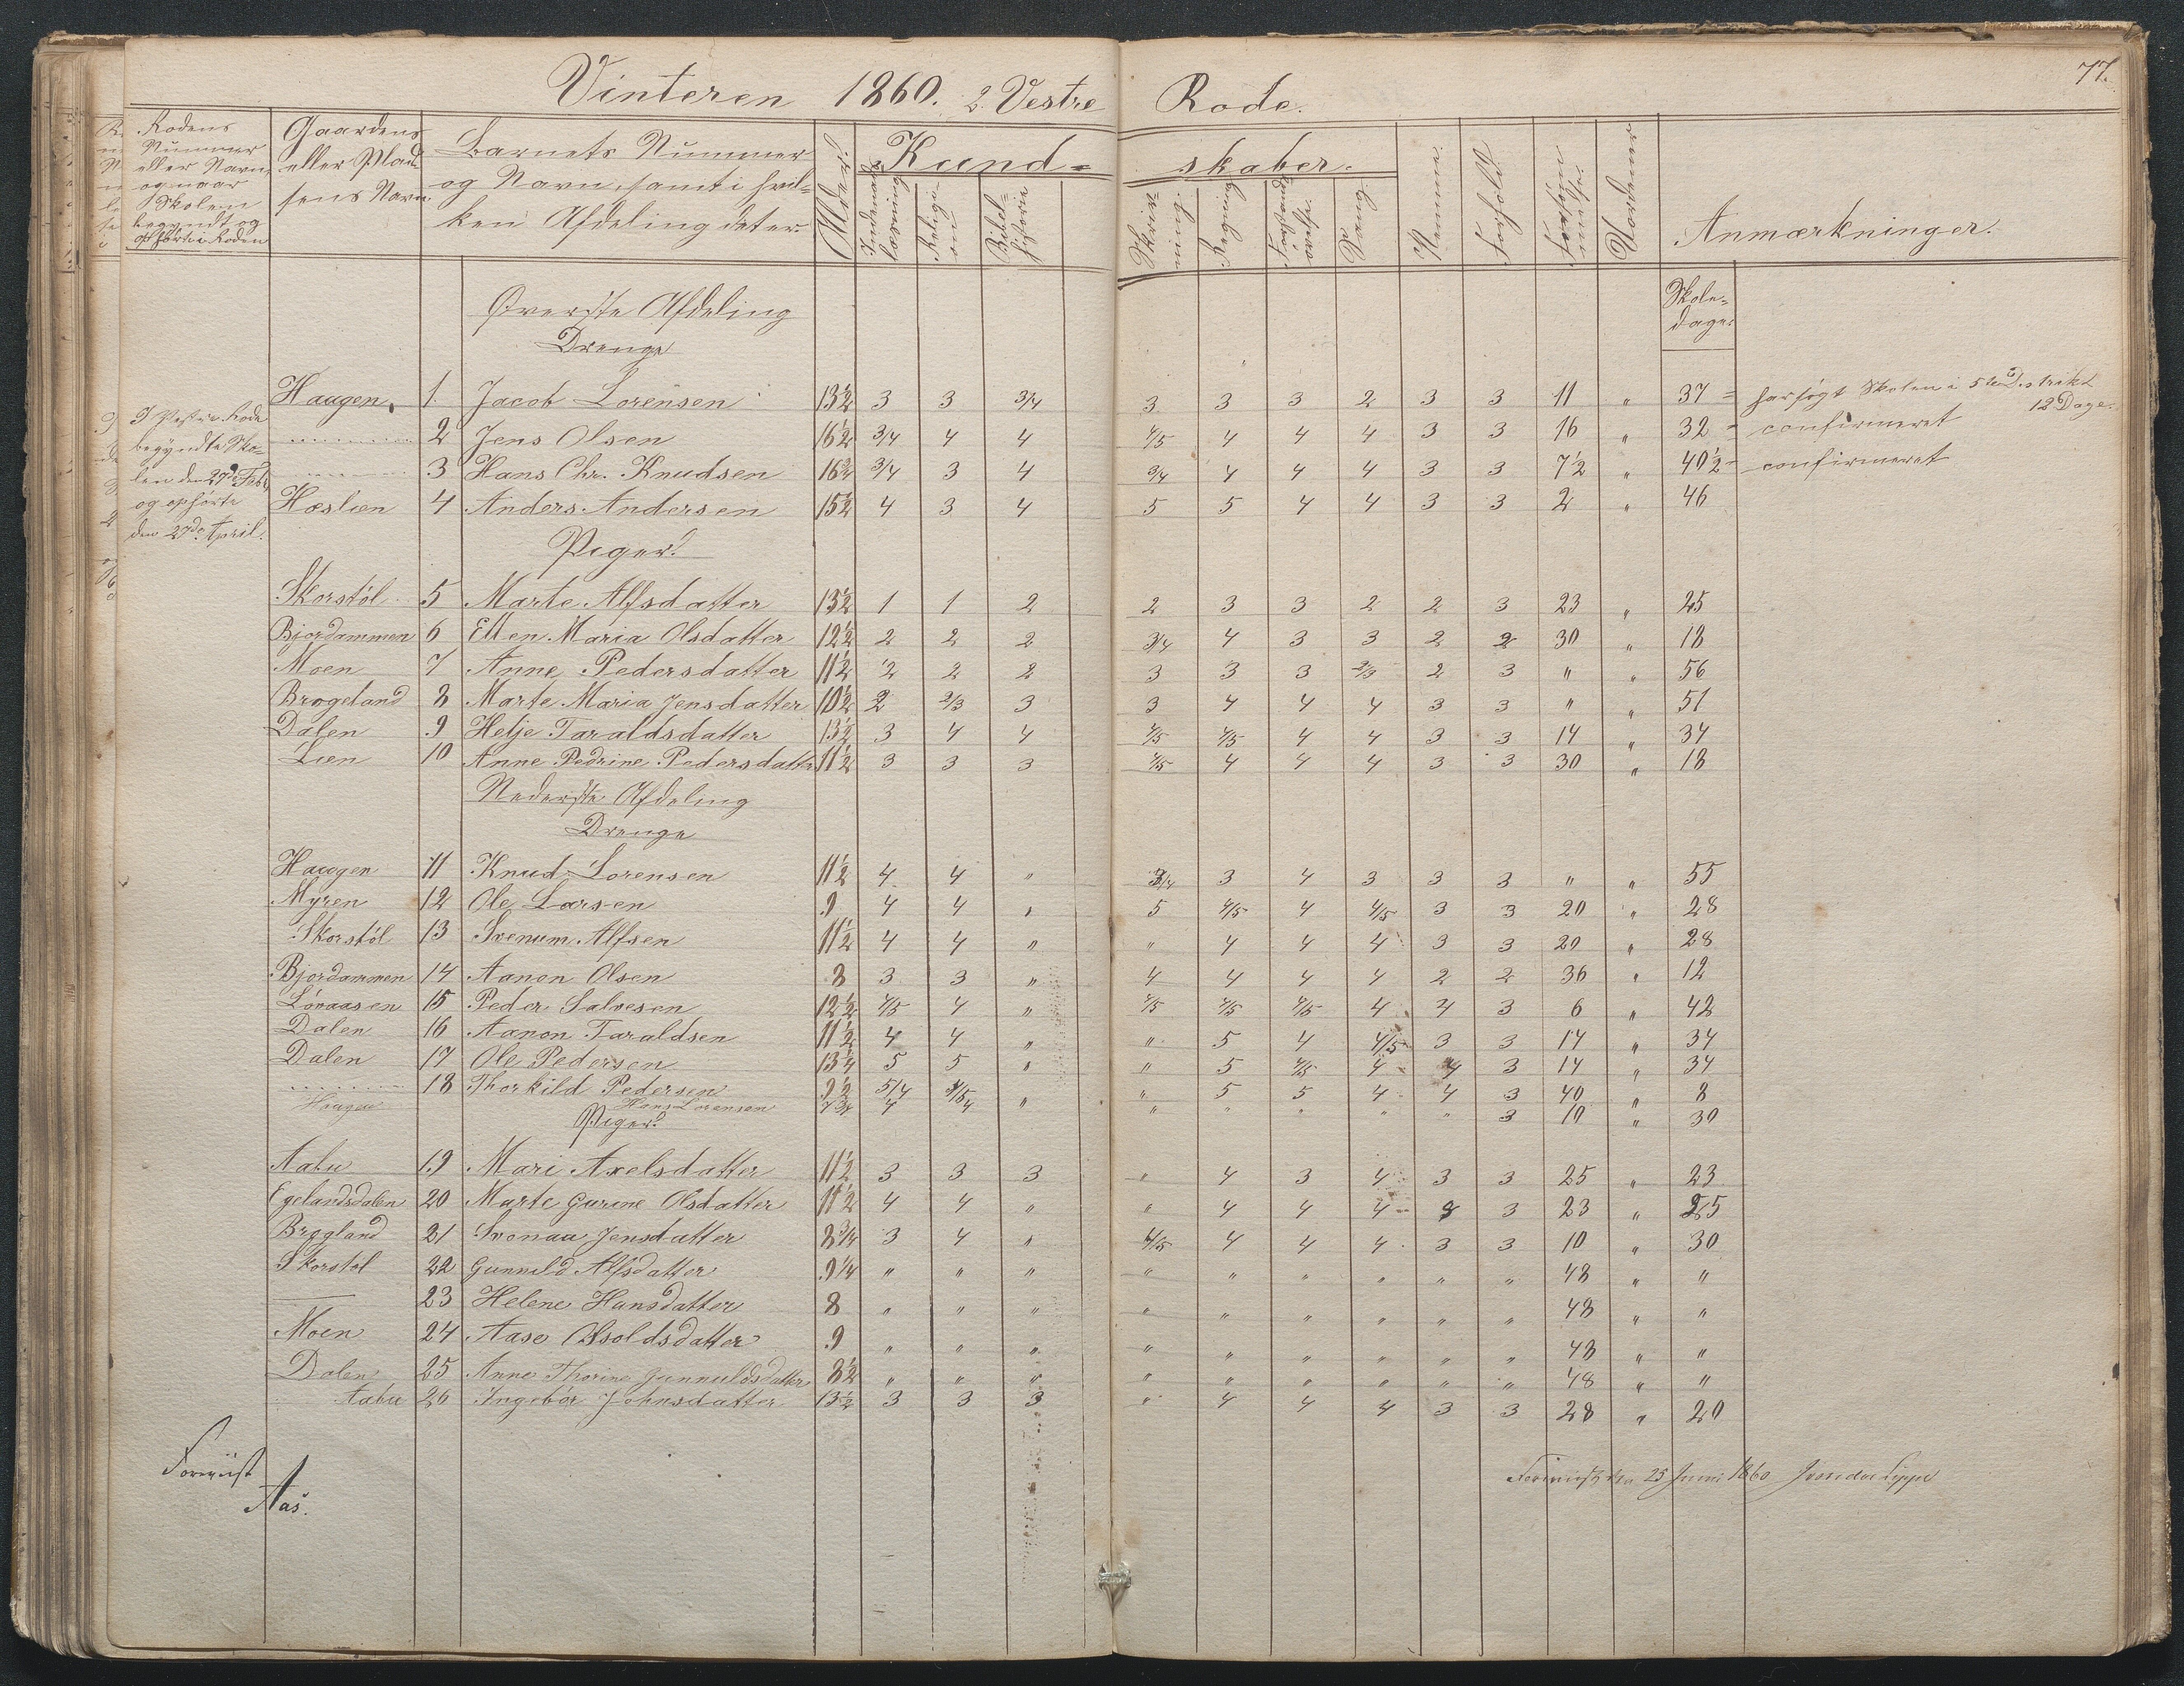 77.
Vinteren 1860. 2. Vestre Rode.
Rodens Nummer eller Navn, og naar Skolen begyndt og ophørte i Roden
Gaardens eller Pladsens Navn
Barnets Nummer og Navn, samt i hvilken Afdeling det er.
Alder.
Kundskaber.
Indenadslæsning
Religion
Bibelhistorie
Skrivning.
Regning
Forstandsøvelse.
Sang.
Nemme.
Forhold.
Forsømmelse.
Anmærkninger.
Skoledage.
Øverste Afdeling
Drenge
I Vestre Rode begyndte Skolen den 27de Feb. og ophørte den 27de April.
Haugen, 1. Jacob Lorensen 13½ 3 3 3/4 3 3 3 2 3 3 11 " 37 = har søgt Skolen i 5te Distrikt 12 Dage.
........ 2 Jens Olsen 16½ 3/4 4 4 4/5 4 4 4 3 3 16 " 32 - confirmeret
........ 3 Hans Chr. Knudsen 16¾ 3/4 3 4 3/4 4 4 4 3 3 7½ " 40½ - confirmeret
Hæslien 4 Anders Andersen 15½ 4 3 4 5 5 4 4 3 3 2 " 46
Piger.
Skorstøl 5 Marte Alfsdatter 13½ 1 1 2 2 3 3 2 2 3 23 " 25
Bjordammen 6 Ellen Maria Olsdatter 12½ 2 2 2 3/4 4 3 3 2 2 30 " 18
Moen 7 Anne Pedersdatter 11½ 2 2 2 3 3 3 2/3 2 3 " " 56
Brøgeland 8 Marte Maria Jensdatter 10½ 2 2/3 3 3 4 4 4 3 3 " " 51
Dalen 9 Helje Taraldsdatter 13½ 3 4 4 4/5 4/5 4 4 3 3 14 " 34
Lien 10 Anne Pedrine Pedersdatter 11½ 3 3 3 4/5 4 4 4 3 3 30 " 18
Nederste Afdeling
Drenge
Haugen 11 Knud Lorensen 11½ 4 4 " 3/4 3 4 3 3 3 " " 55
Myren 12 Ole Larsen 9 4 4 " 5 4/5 4 4/5 3 3 20 " 28
Skorstøl 13 Svenum Alfsen 11½ 4 4 " " 4 4 4 3 3 20 " 28
Bjordammen 14 Aanon Olsen 8 3 3 " 4 4 4 4 2 2 36 " 12
Løvaasen 15 Peder Salvesen 12½ 4/5 4 " 4/5 4/5 4/5 4 4 3 6 " 42
Dalen 16 Aanon Taraldsen 11½ 4 4 " " 5 4 4/5 3 3 14 " 34
Dalen 17 Ole Pedersen 13¼ 5 5 " " 5 4/5 4 4 3 14 " 34
........ 18 Thorkild Pedersen 9½ 5/4 4/5 " " 5 5 4 4 3 40 " 8
Haugen Hans Lorensen 7¾ 4 4 " " " " " 3 10 " 30
Piger.
Aabu 19 Mari Axelsdatter 11½ 3 3 3 " 4 3 4 3 3 25 " 23
Egelandsdalen 20 Marte Gurine Olsdatter 11½ 4 4 " " 4 4 4 3 3 23 " 25
Brøgland 21 Svenau Jensdatter 8¾ 3 4 " 4/5 4 4 4 3 3 10 " 30
Skorstøl 22 Gunnild Alfsdatter 9¼ " " " " " " " " " 48 " "
—— 23 Helene Hansdatter 8 " " " " " " " " " 48 " "
Moen 24 Aase Osoldsdatter 9 " " " " " " " " " 48 " "
Dalen 25 Anne Thorine Gunnuldsdatter 8½ " " " " " " " " " 48 " "
Aabu 26 Ingebør Johnsdatter 13½ 3 3 3 " 4 4 4 3 3 28 " 20
Foreviist
Aas.
Foreviist den 25 Juni 1860